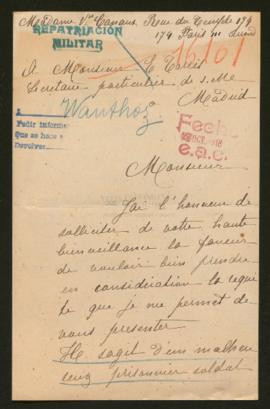 Madame Vve Canaux, Rue du Temple 179
REPATRIACIÓN
MILITAR
179 Paris
A Monsieur E Torres
Secretaire particulier de S. M
Madrid
A
Pedir informe
Que se hace
Devolver
Fecho
OCT. 1918
e.a.c.
Monsieur
J'ai l'honneur de
solliciter de votre haute
bienveillance la faveur
de vouloir bien prendre
en considération la requê
te que je me permet de
vous presenter
Il s'agit d'un malheu
reux prisonnier soldat